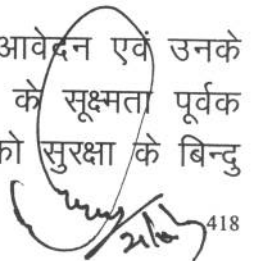 आवेदन एवं उनके
के सूक्ष्मता पूर्वक
को सुरक्षा के बिन्दु
418